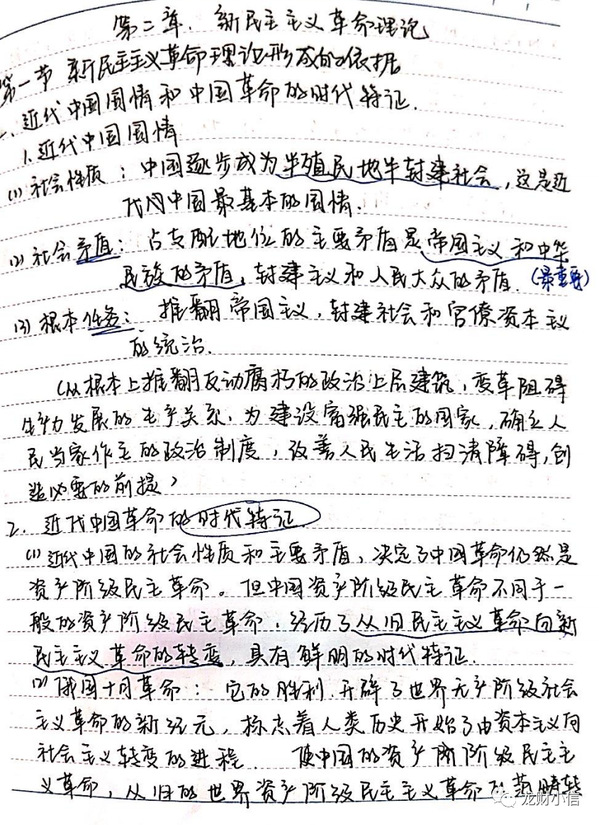 第二章、新民主主义革命理论
第一节 新民主主义革命理论形成的依据
一、近代中国国情和中国革命的时代特征.
1.近代中国国情
(1) 社会性质：中国逐步成为半殖民地半封建社会，这是近
代中国最基本的国情.
(2) 社会矛盾：占支配地位的主要矛盾是帝国主义和中华
民族的矛盾，封建主义和人民大众的矛盾 (最重要)
(3) 根本任务：推翻帝国主义，封建社会和官僚资本主义
的统治.
(从根本上推翻反动腐朽的政治上层建筑，变革阻碍
生产力发展的生产关系，为建设富强民主的国家，确立人
民当家作主的政治制度，改善人民生活扫清障碍，创
造必要的前提)
2. 近代中国革命的时代特征
(1) 近代中国的社会性质和主要矛盾，决定了中国革命仍然是
资产阶级民主革命。但中国资产阶级民主革命不同于一
般的资产阶级民主革命，经历了从旧民主主义革命向新
民主主义革命的转变，具有鲜明的时代特征.
(2) 俄国十月革命：它的胜利开辟了世界无产阶级社会
主义革命的新纪元，标志着人类历史开始了由资本主义向
社会主义转变的进程 使中国的资产阶阶级民主主
义革命，从旧的世界资产阶级民主主义革命的范畴转
龙财小信